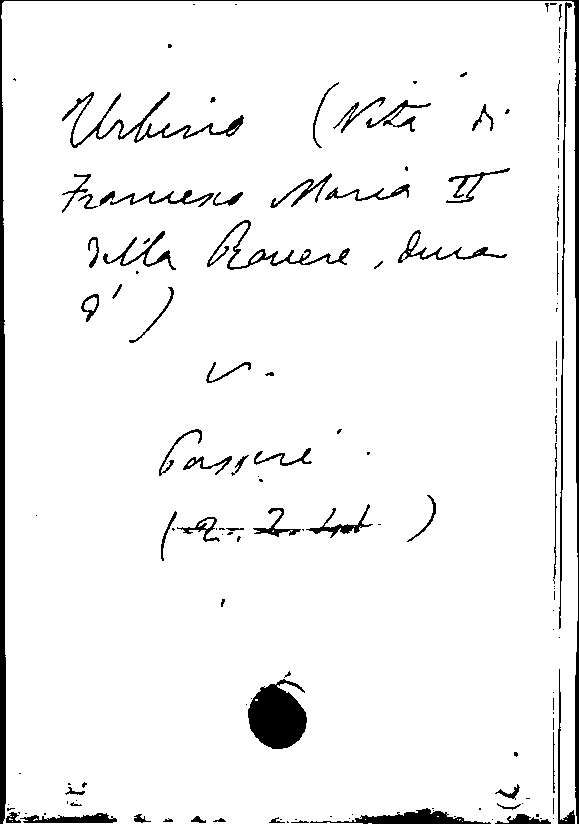 Urbino (Vita di
Francesco Maria II
della Rovere, duca
d')
v.
Passeri
(2.2.41)